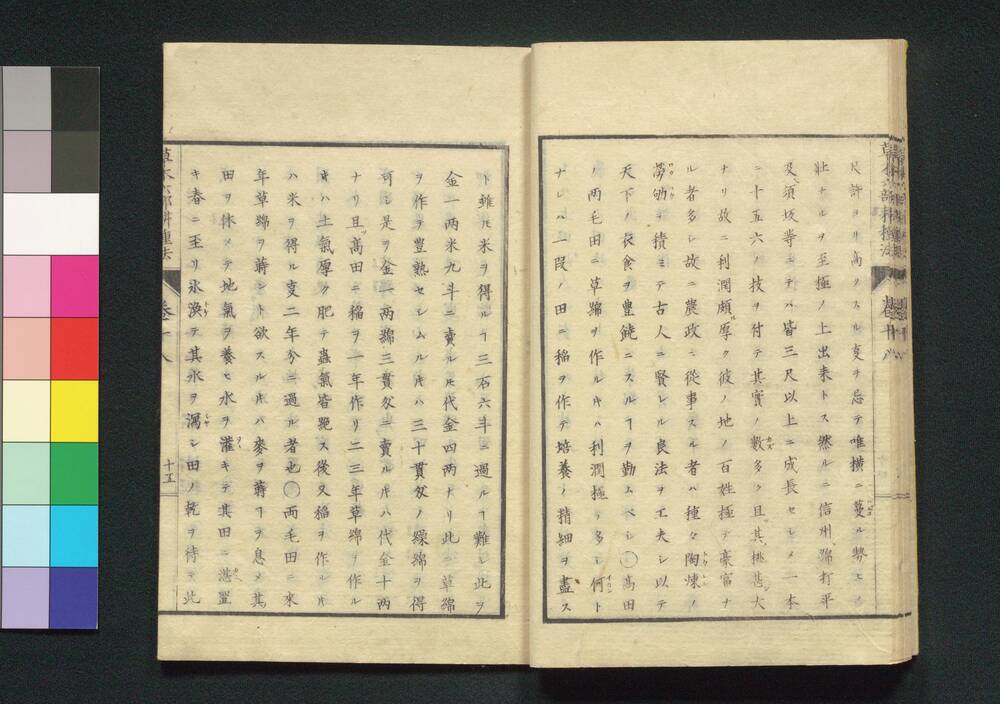 草木六部耕種法 卷十八
尺許ヨリ高クスル叓ヲ忌テ唯横ニ蔓ル勢ヒノ
壯ナルヲ至極ノ上出来トス然ルニ信州綿打平
及須坂等ニテハ皆三尺以上ニ成長セシメ一本
ニ十五六ノ技ヲ付テ其實ノ數多ク且其桃甚大
ナリ故ニ利潤頗厚ク彼ノ地ノ百姓極テ豪富ナ
ル者多シ故ニ農政ニ從事スル者ハ種々陶煉ノ
勞劬ヲ積ミテ古人ニ賢レル良法ヲ工夫シ以テ
天下ノ衣食ヲ豊饒ニスルヿヲ勤ムベシ〇高田
ノ兩毛田ニ草綿ヲ作ルトキハ利潤極テ多シ何ト
ナレハ一段ノ田ニ稲ヲ作テ培養ノ精細ヲ盡ス
ト雖ドモ米ヲ得ルヿ三石六斗ニ過ルヿ難シ此ヲ
金一两米九斗ニ賣ルトモ代金四两ナリ此ニ草綿
ヲ作テ豊熟セシムルトキハ三十貫匁ノ繰綿ヲ得
可シ是ヲ金一两綿三貫匁ニ賣ルトキハ代金十两
ナリ且高田ニ稲ヲ一年作リ二三年草綿ヲ作ル
トキハ土氣厚ク肥テ蟲氣皆斃ス後又稲ヲ作ルトキ
ハ米ヲ得ル叓二年分ニ過ル者也〇兩毛田ニ來
年草綿ヲ蒔ント欲スルトキハ麥ヲ蒔ヿヲ息メ其
田ヲ休メテ地氣ヲ養ヒ水ヲ灌キテ其田ニ湛置
キ春ニ至リ氷渙テ其水ヲ瀉シ田ノ乾ヲ待テ此
草木六部耕種法 卷十八 十五